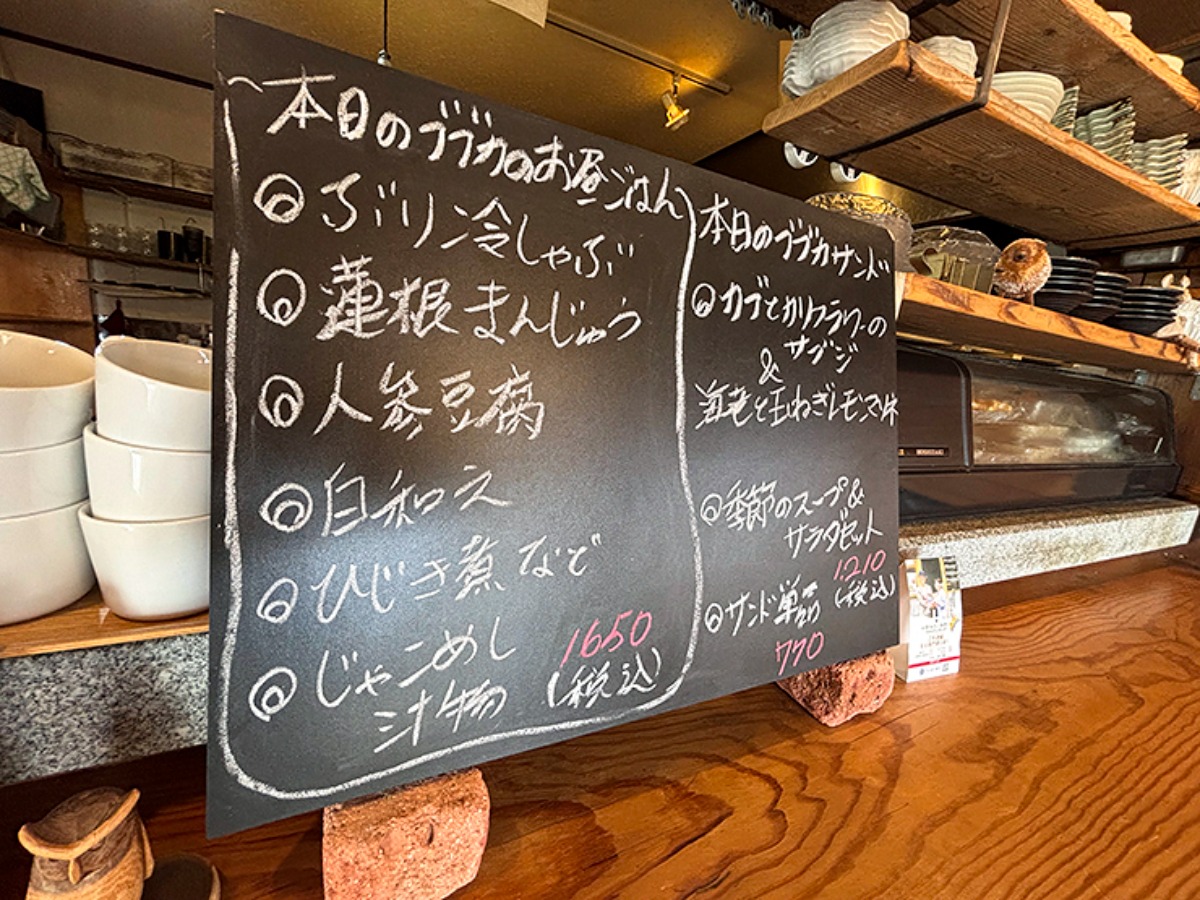 本日のブブカのお昼ごはん
◎ぶり冷しゃぶ
◎蓮根まんじゅう
◎人参豆腐
◎白和え
◎ひじき煮など
◎じゃこめし
汁物
1650
(税込)
本日のブブカサンド
◎カブとカリフラワーの
サブジ
&
海老と玉ねぎレモンマリネ
◎季節のスープ&
サラダセット
1.210
(税込)
◎サンド単品
770